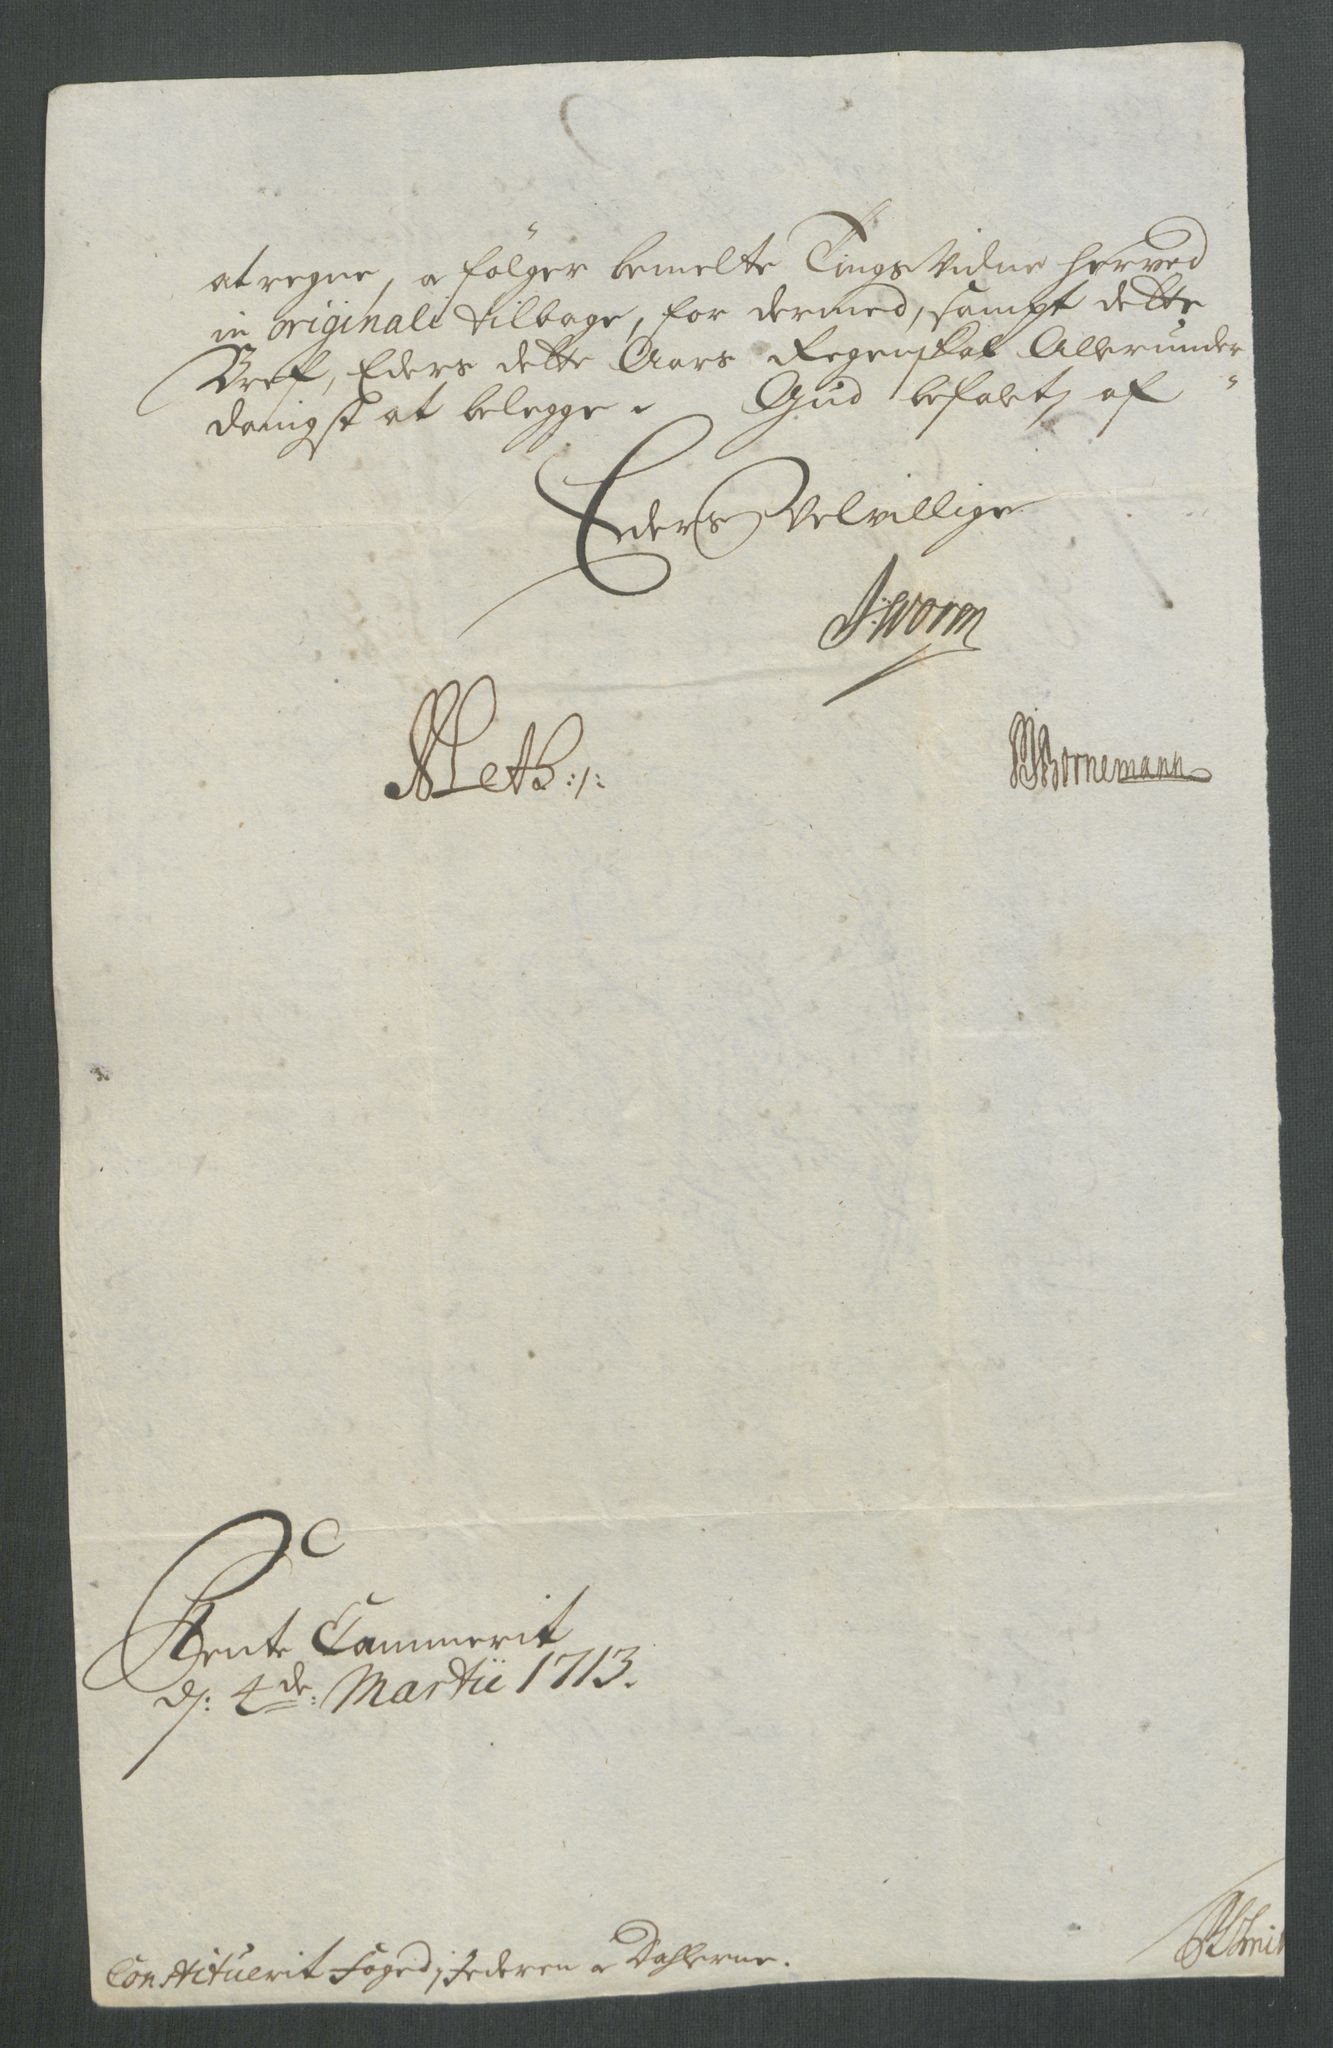 at regne, og følger bemelte Tings Vidne herved
in originali tilbage, for dermed, sampt dette
Bref, Eders dette Aars Regenskab Allerunder
danigst at belegge. Gud befalet af
Eders Velvillige
J: Worm
Bornemann
Rente Cammerit
d: 4de: Martii 1713.
Constituerit Foged i Jederen og Dahlerne.